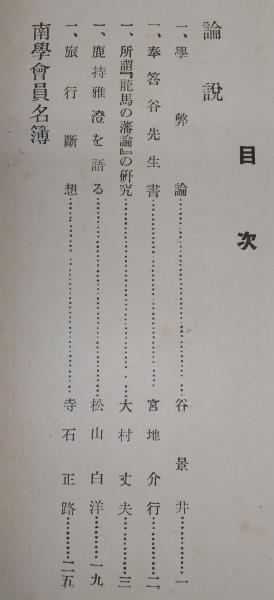 目次
論説
一、學弊論……………………谷景井……一
一、奉答谷先生書……………………宮地介行……二
一、所謂『龍馬の藩論』の研究……………………大村丈夫……三
一、鹿持雅澄を語る……………………松山白洋……一九
一、旅行斷想……………………寺石正路……二五
南學會員名簿